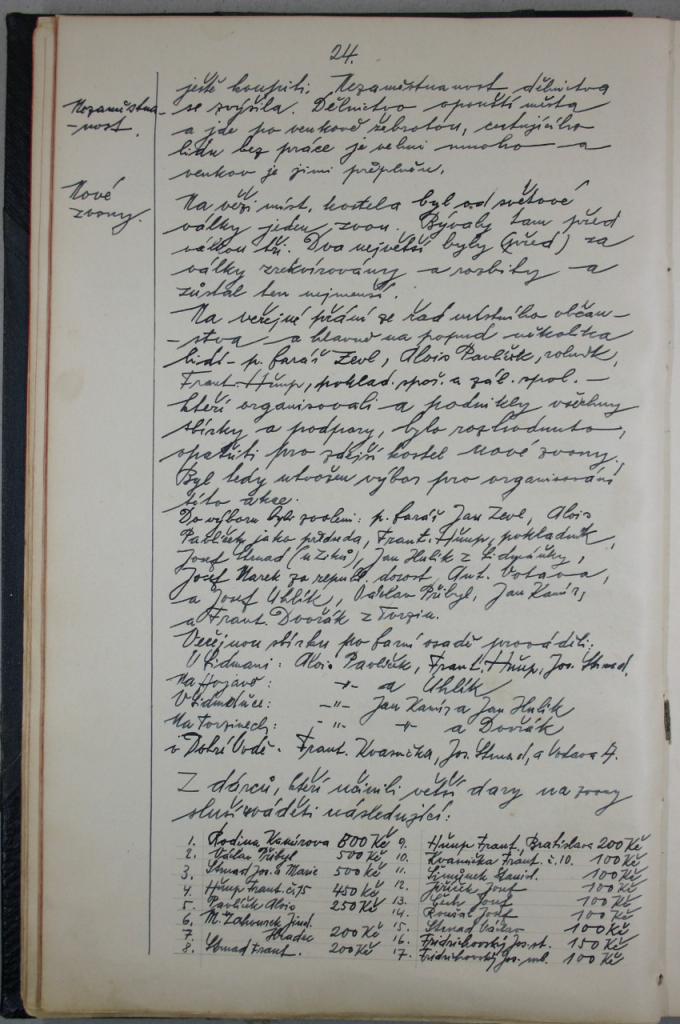 24.
ještě koupiti. Nezaměstnanost dělnictva
Nezaměstna-
-nost.
se zvýšila. Dělnictvo opouští města
a jde po venkově žebrotou, cestujícího
lidu bez práce je velmi mnoho a
venkov je jimi přeplněn.
Nové
zvony.
Na věži míst. kostela byl od světové
války jeden zvon. Bývaly tam před
válkou tři. Dva největší byly (před) za
války zrekvírovány a rozbity a
zůstal ten nejmenší.
Na veřejné přání ze řad místního občan-
-stva a hlavně na popud několika
lidí - p. farář Zevl, Alois Pavlíček, rolník,
Frant. Hřump, poklad. spoř. a zál. spol. -
kteří organisovali a podnikly všechny
sbírky a podpory, bylo rozhodnuto,
opatřiti pro zdejší kostel nové zvony.
Byl tedy utvořen výbor pro organisování
této akce.
Do výboru byli zvoleni: p. farář Jan Zevl, Alois
Pavlíček jako předseda, Frant. Hřump, pokladník,
Josef Strnad (u Zíků), Jan Hulík z
Josef Marek za republ. dorost, Ant. Votava,
a Josef Uhlík, Václav Přibyl, Jan Kamír,
a Frant. Dvořák z
Veřejnou sbírku po farní osadě prováděli:
Alois Pavlíček, Frant. Hřump, Jos. Strnad.
Na Hojavo: -"- a Uhlík
-"- Jan Kamír a Jan Hulík
-"- -"- a Dvořák
v Dobré Vodě - Frant. Kvasnička, Jos. Strnad, a Votava A.
Z dárců, kteří učinili větší dary na zvony
sluší uváděti následující:
1. Rodina Kamírova 800 Kč
2. Václav Přibyl 500 Kč
3. Strnad Jos. a Marie 500 Kč
4. Hřump Frant. č. 75 450 Kč
5. Pavlíček Alois 250 Kč
6. M. Jind.
7. Hradec 200 Kč
8. Strnad Frant. 200 Kč
9. Hřump Frant, Bratislava 200 Kč
10. Kvasnička Frant. č. 10. 100 Kč
11. Šimůnek 100 Kč
12. Josef 100 Kč
13. Josef 100 Kč
14. Josef 100 Kč
15. Strnad Václav 100 Kč
16. Fridrichovský Jos. st. 150 Kč
17. Fridrichovský Jos. ml. 100 Kč